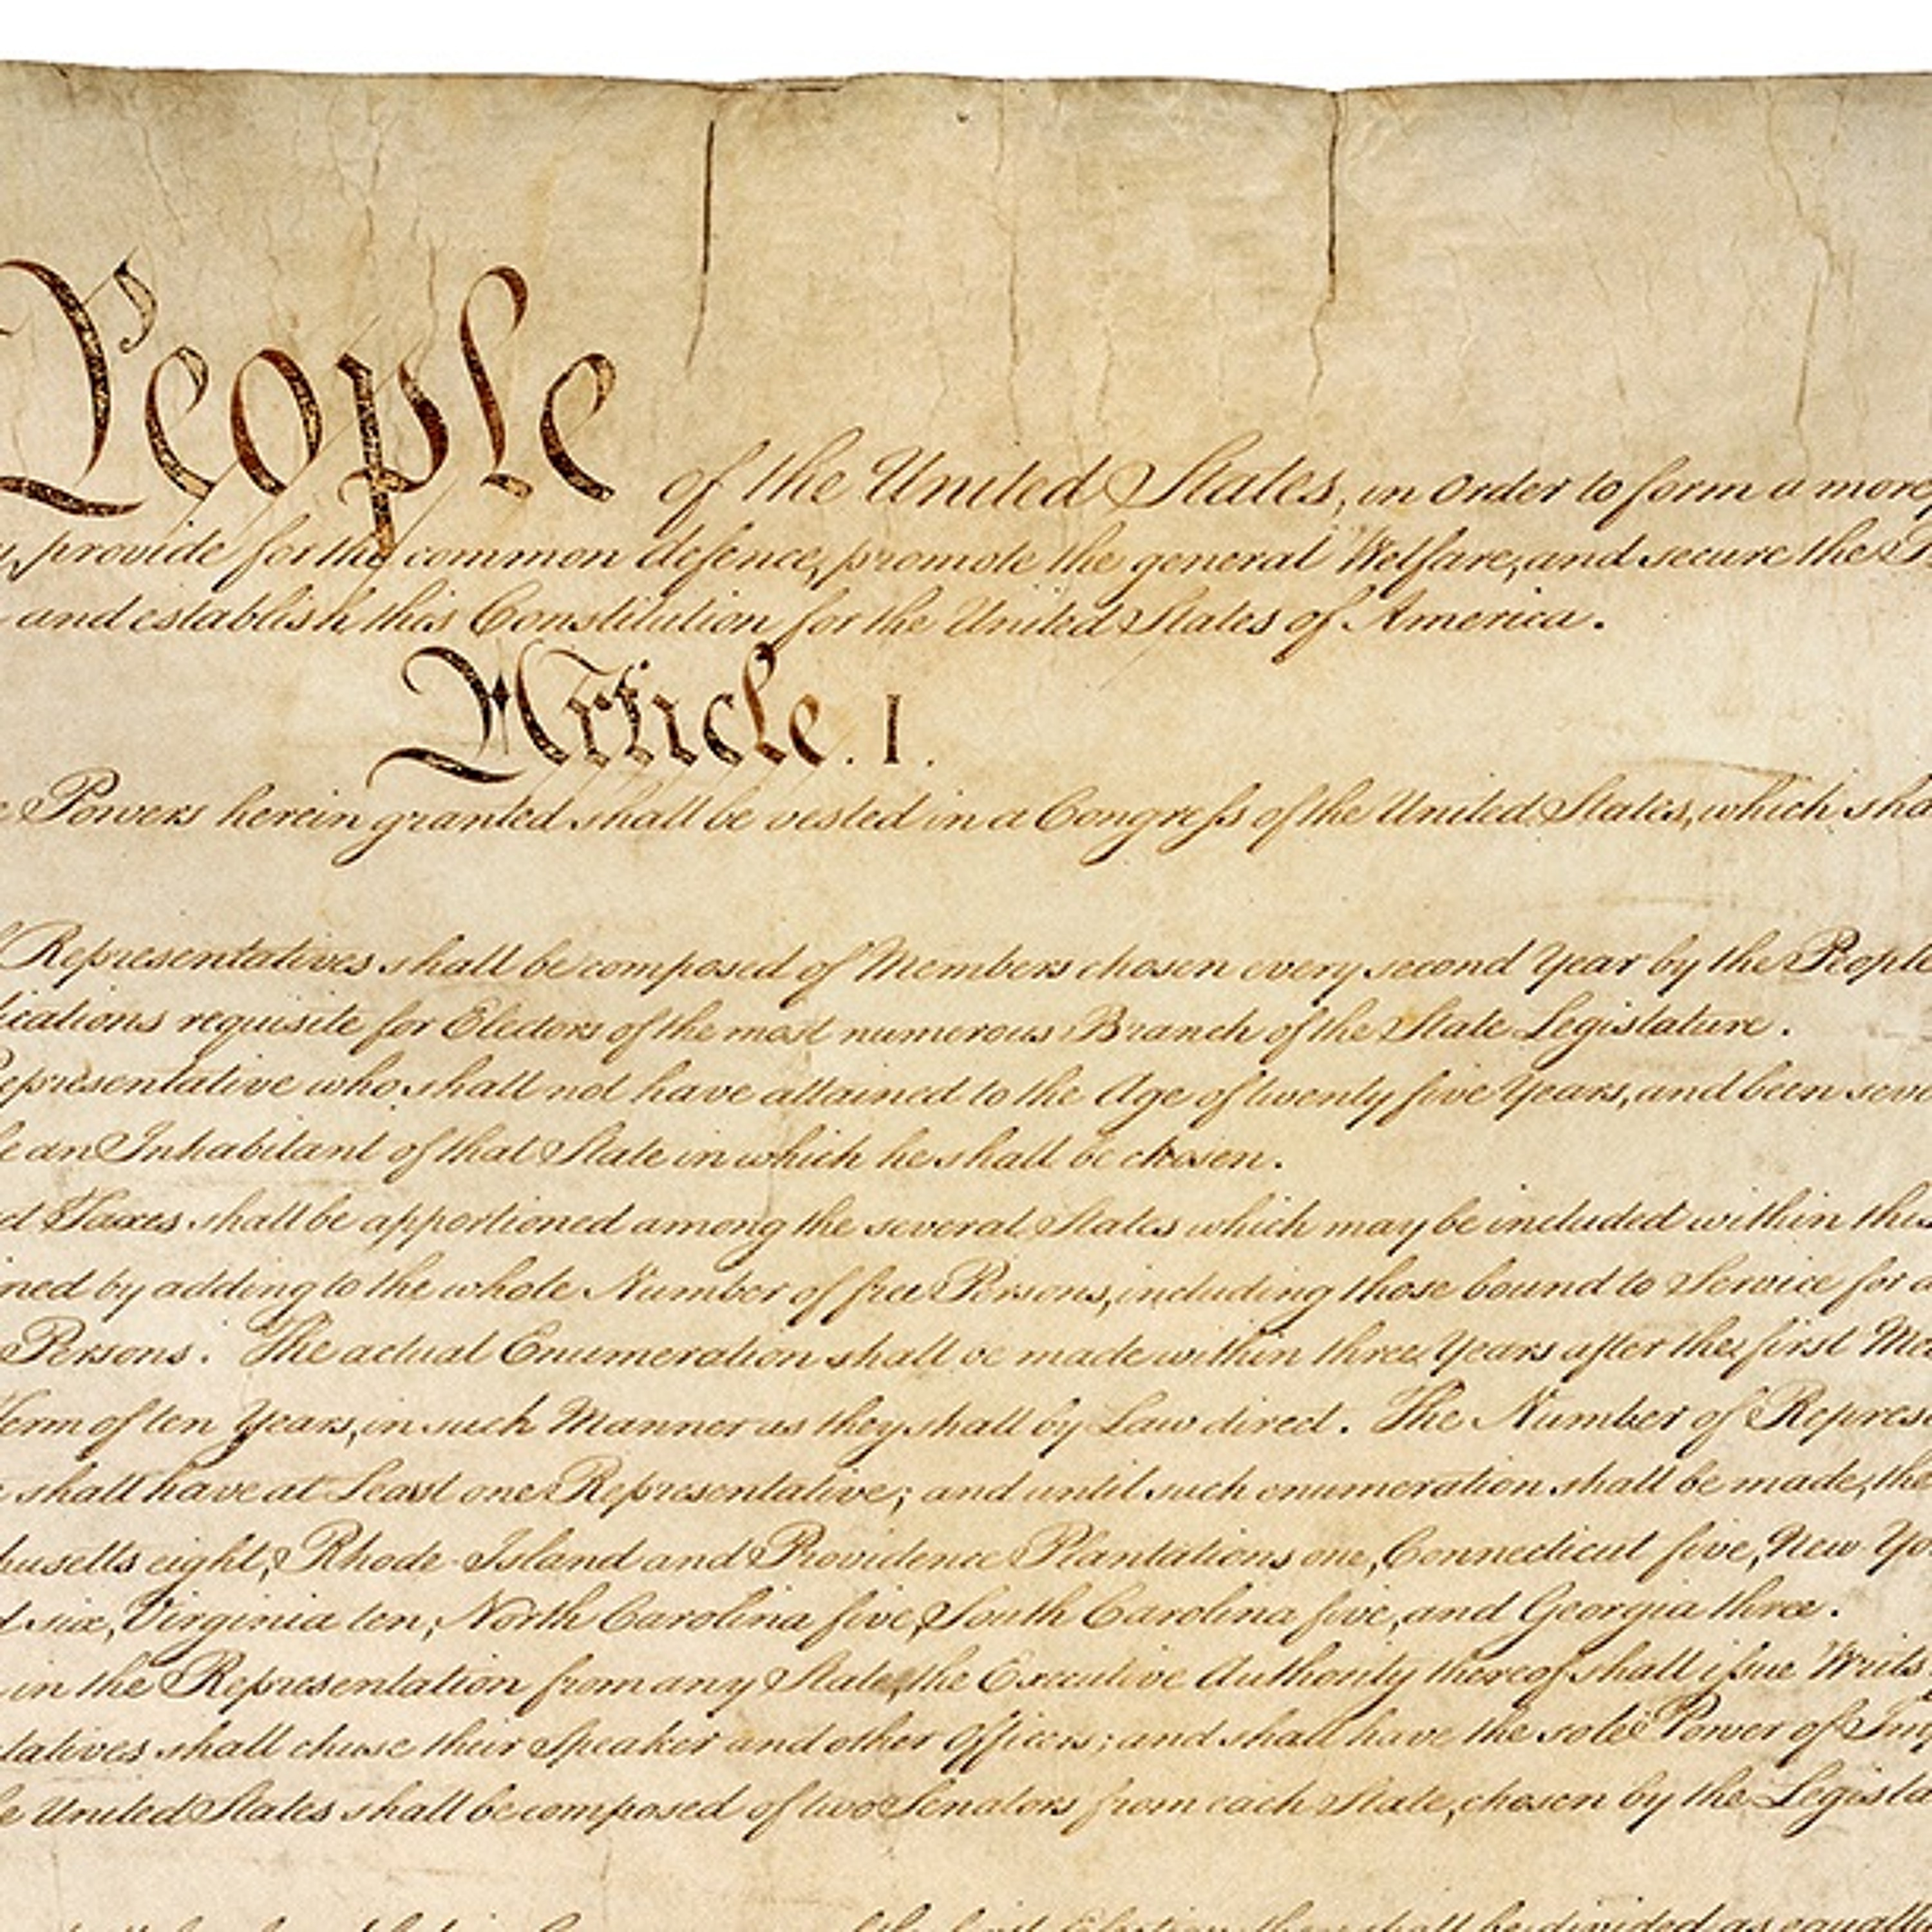 People of the United States, in Order to form a more
provide for the common defence, promote the general Welfare, and secure the
and establish this Constitution for the United States of America.
Article. I.
Powers herein granted shall be vested in a Congress of the United States, which sha
Representatives shall be composed of Members chosen every second Year by the People
ications requisite for Electors of the most numerous Branch of the State Legislature.
Representative who shall not have attained to the Age of twenty five Years, and been seve
an Inhabitant of that State in which he shall be chosen.
ct Taxes shall be apportioned among the several States which may be included within this
ined by adding to the whole Number of free Persons, including those bound to Service for a
Persons. The actual Enumeration shall be made within three Years after the first Mee
Term of ten Years, in such Manner as they shall by Law direct. The Number of Represe
shall have at Least one Representative; and until such enumeration shall be made, the
husetts eight, Rhode-Island and Providence Plantations one, Connecticut five, New Yo
d six, Virginia ten, North Carolina five, South Carolina five, and Georgia three.
in the Representation from any State, the Executive Authority thereof shall issue Writs
tatives shall chuse their Speaker and other Officers; and shall have the sole Power of Imp
e United States shall be composed of two Senators from each State, chosen by the Legisla